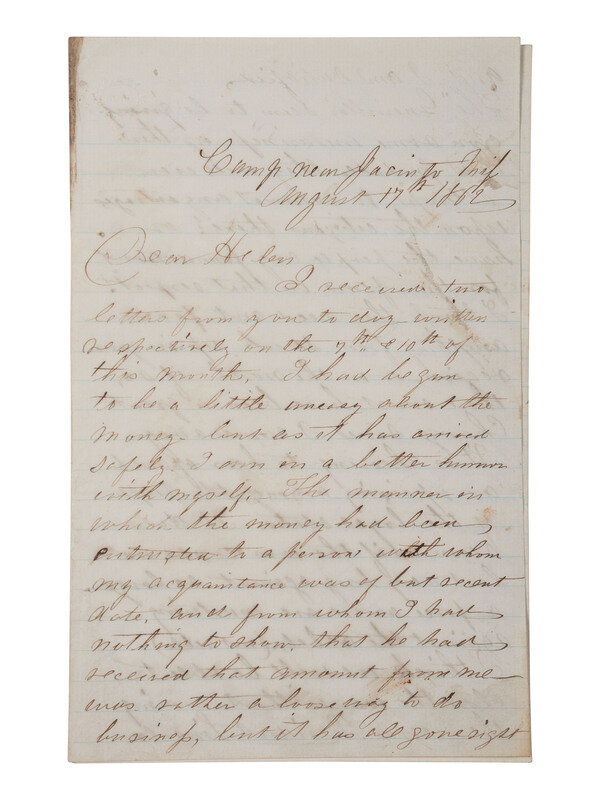 Camp near Jacinto Miss
August 17th 1862
Dear Helen
I received two
letters from you to day written
respectively on the 7th & 10th of
this month. I had begun
to be a little uneasy about the
money. but as it has arrived
safely I am in a better humor
with myself. The manner in
which the money had been
entrusted to a person with whom
my acquaintance was of but recent
date, and from whom I had
nothing to show, that he had
received that amount from me
was rather a loose way to do
business, but it has all gone right